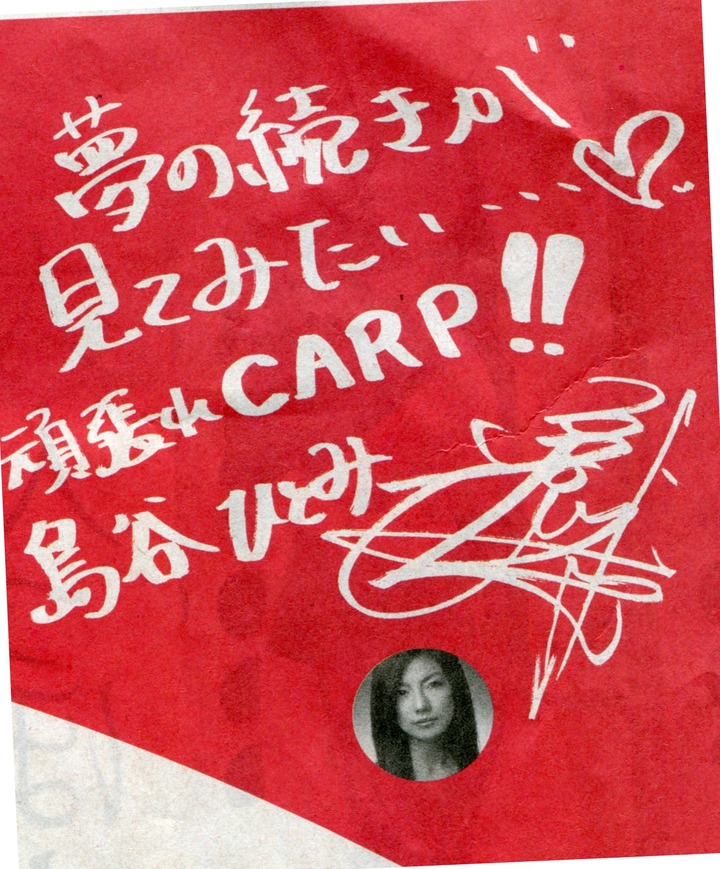 夢の続きが
見てみたい…
頑張れCARP!!
島谷ひとみ